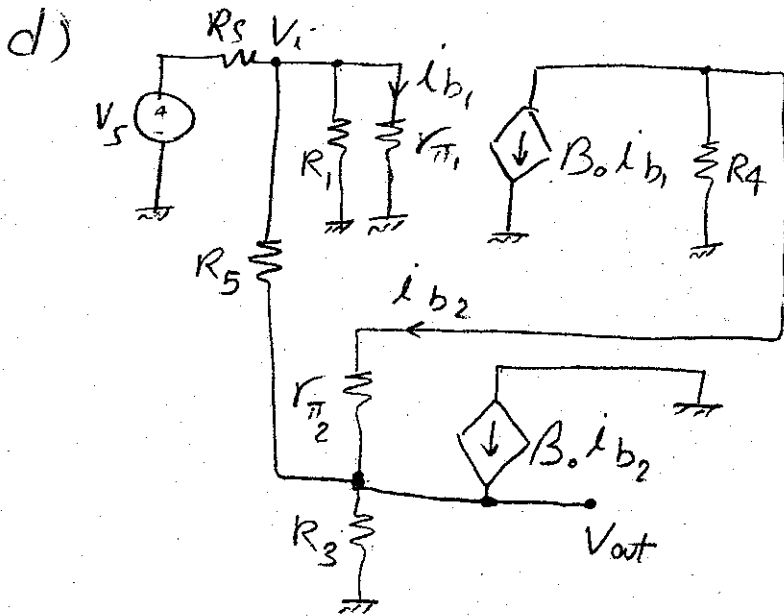 d)
Rs Vi
ib1
Vs + -
R1 rπ1 β0 ib1 R4
R5
ib2
rπ2
β0 ib2
R3 Vout